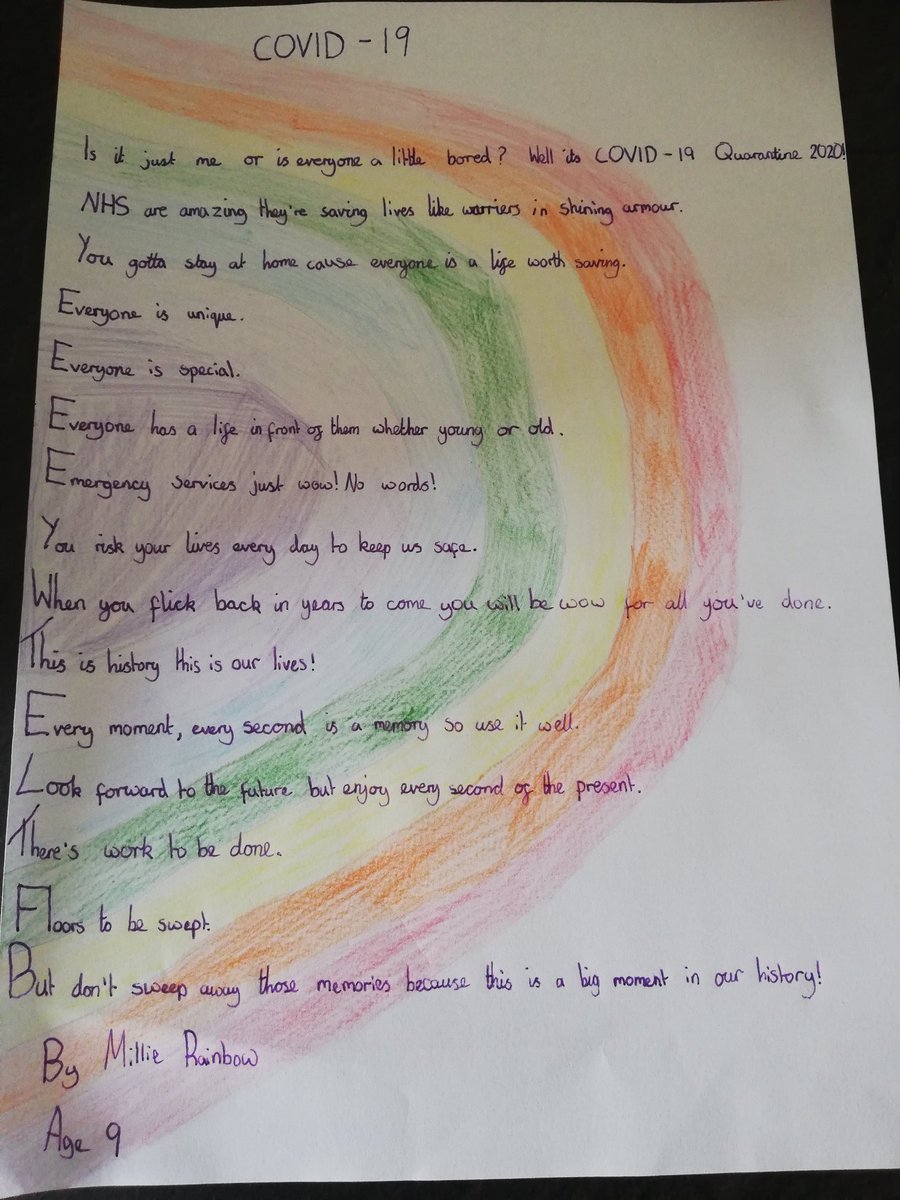 COVID - 19
Is it just me or is everyone a little bored? Well its COVID - 19 Quarantine 2020!
NHS are amazing they're saving lives like warriers in shining armour.
You gotta stay at home cause everyone is a life worth saving.
Everyone is unique.
Everyone is special.
Everyone has a life in front of them whether young or old.
Emergency services just wow! No words!
You risk your lives every day to keep us safe.
When you flick back in years to come you will be wow for all you've done.
This is history this is our lives!
Every moment, every second is a memory so use it well.
Look forward to the future but enjoy every second of the present.
There's work to be done.
Floors to be swept.
But don't sweep away those memories because this is a big moment in our history!
By Millie Rainbow
Age 9